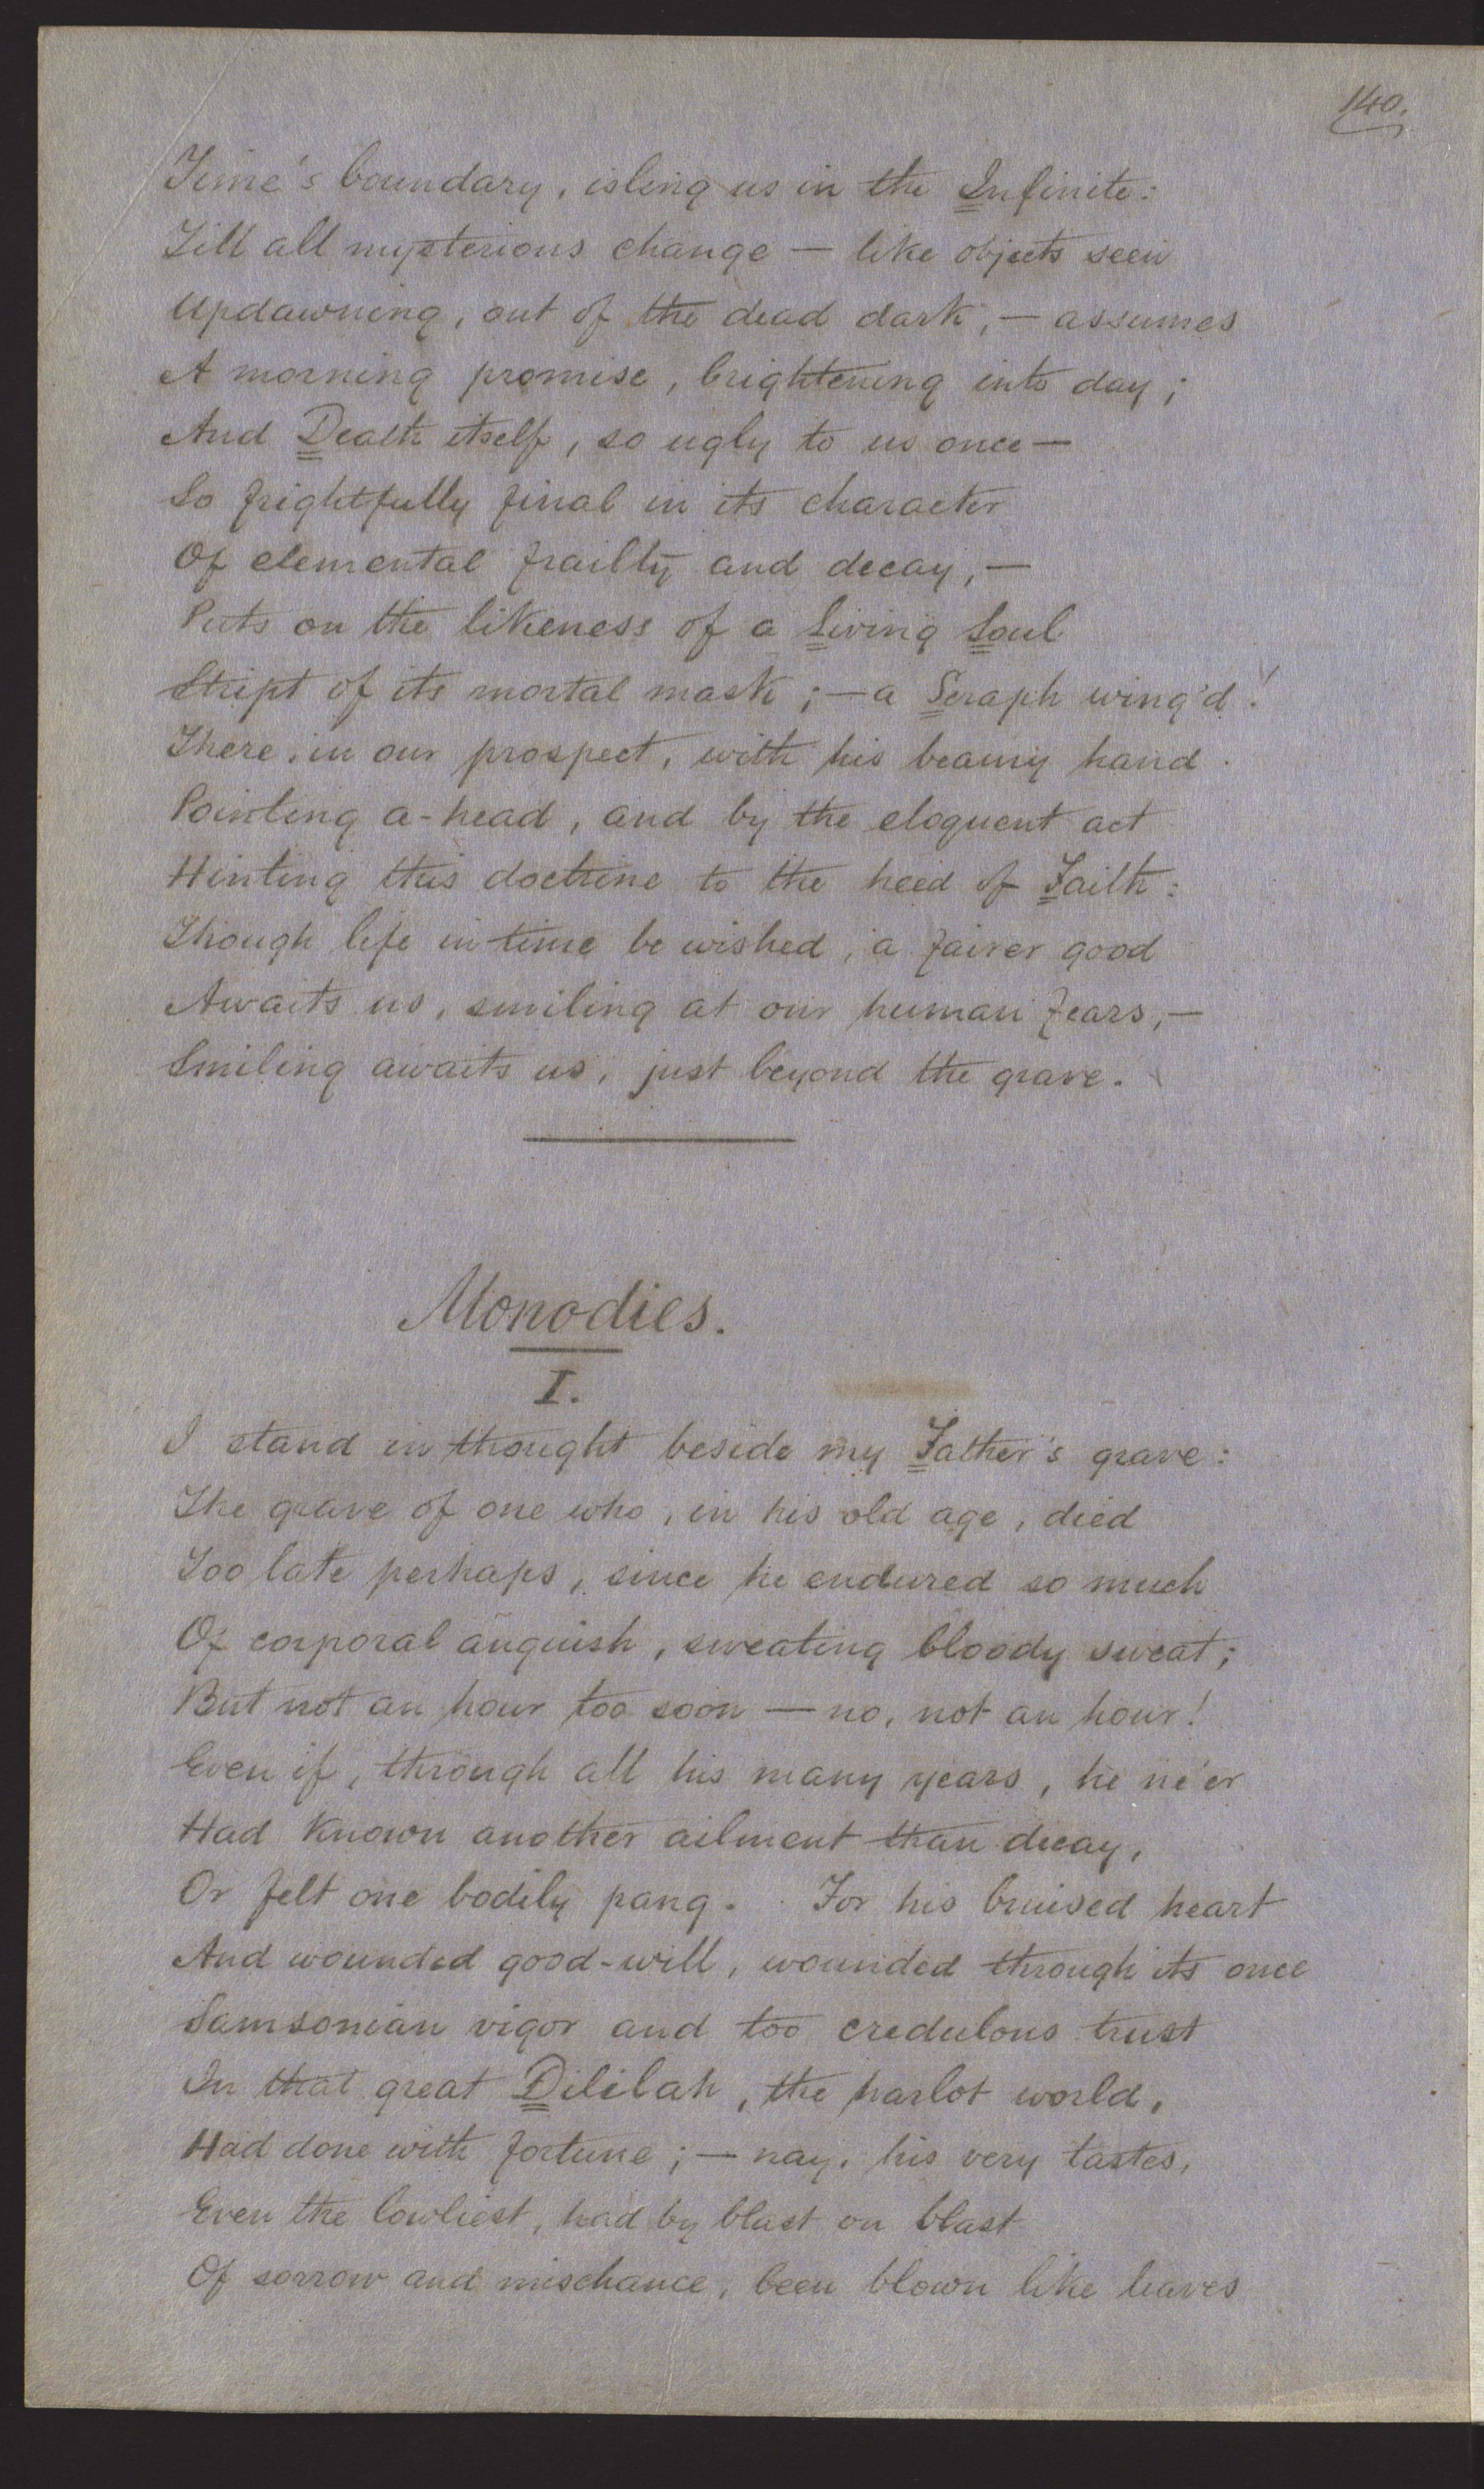 140.
Time's boundary, isling us in the Infinite:
Till all mysterious change — like objects seen
Updawning, out of the dead dark, — assumes
A morning promise, brightening into day;
And Death itself, so ugly to us once —
So frightfully final in its character
Of elemental frailty and decay, —
Puts on the likeness of a Living Soul
Stript of its mortal mask; — a Seraph wing'd!
There, in our prospect, with his beamy hand
Pointing a-head, and by the eloquent act
Hinting this doctrine to the heed of Faith:
Though life in time be wished, a fairer good
Awaits us, smiling at our human fears, —
Smiling awaits us, just beyond the grave.
Monodies.
I.
I stand in thought beside my Father's grave:
The grave of one who, in his old age, died
Too late perhaps, since he endured so much
Of corporal anguish, sweating bloody sweat;
But not an hour too soon — no, not an hour!
Even if, through all his many years, he ne'er
Had known another ailment than decay,
Or felt one bodily pang. For his bruised heart
And wounded good-will, wounded through its once
Samsonian vigor and too credulous trust
In that great Dililah, the harlot world,
Had done with fortune; — nay, his very tastes,
Even the lowliest, had by blast on blast
Of sorrow and mischance, been blown like leaves